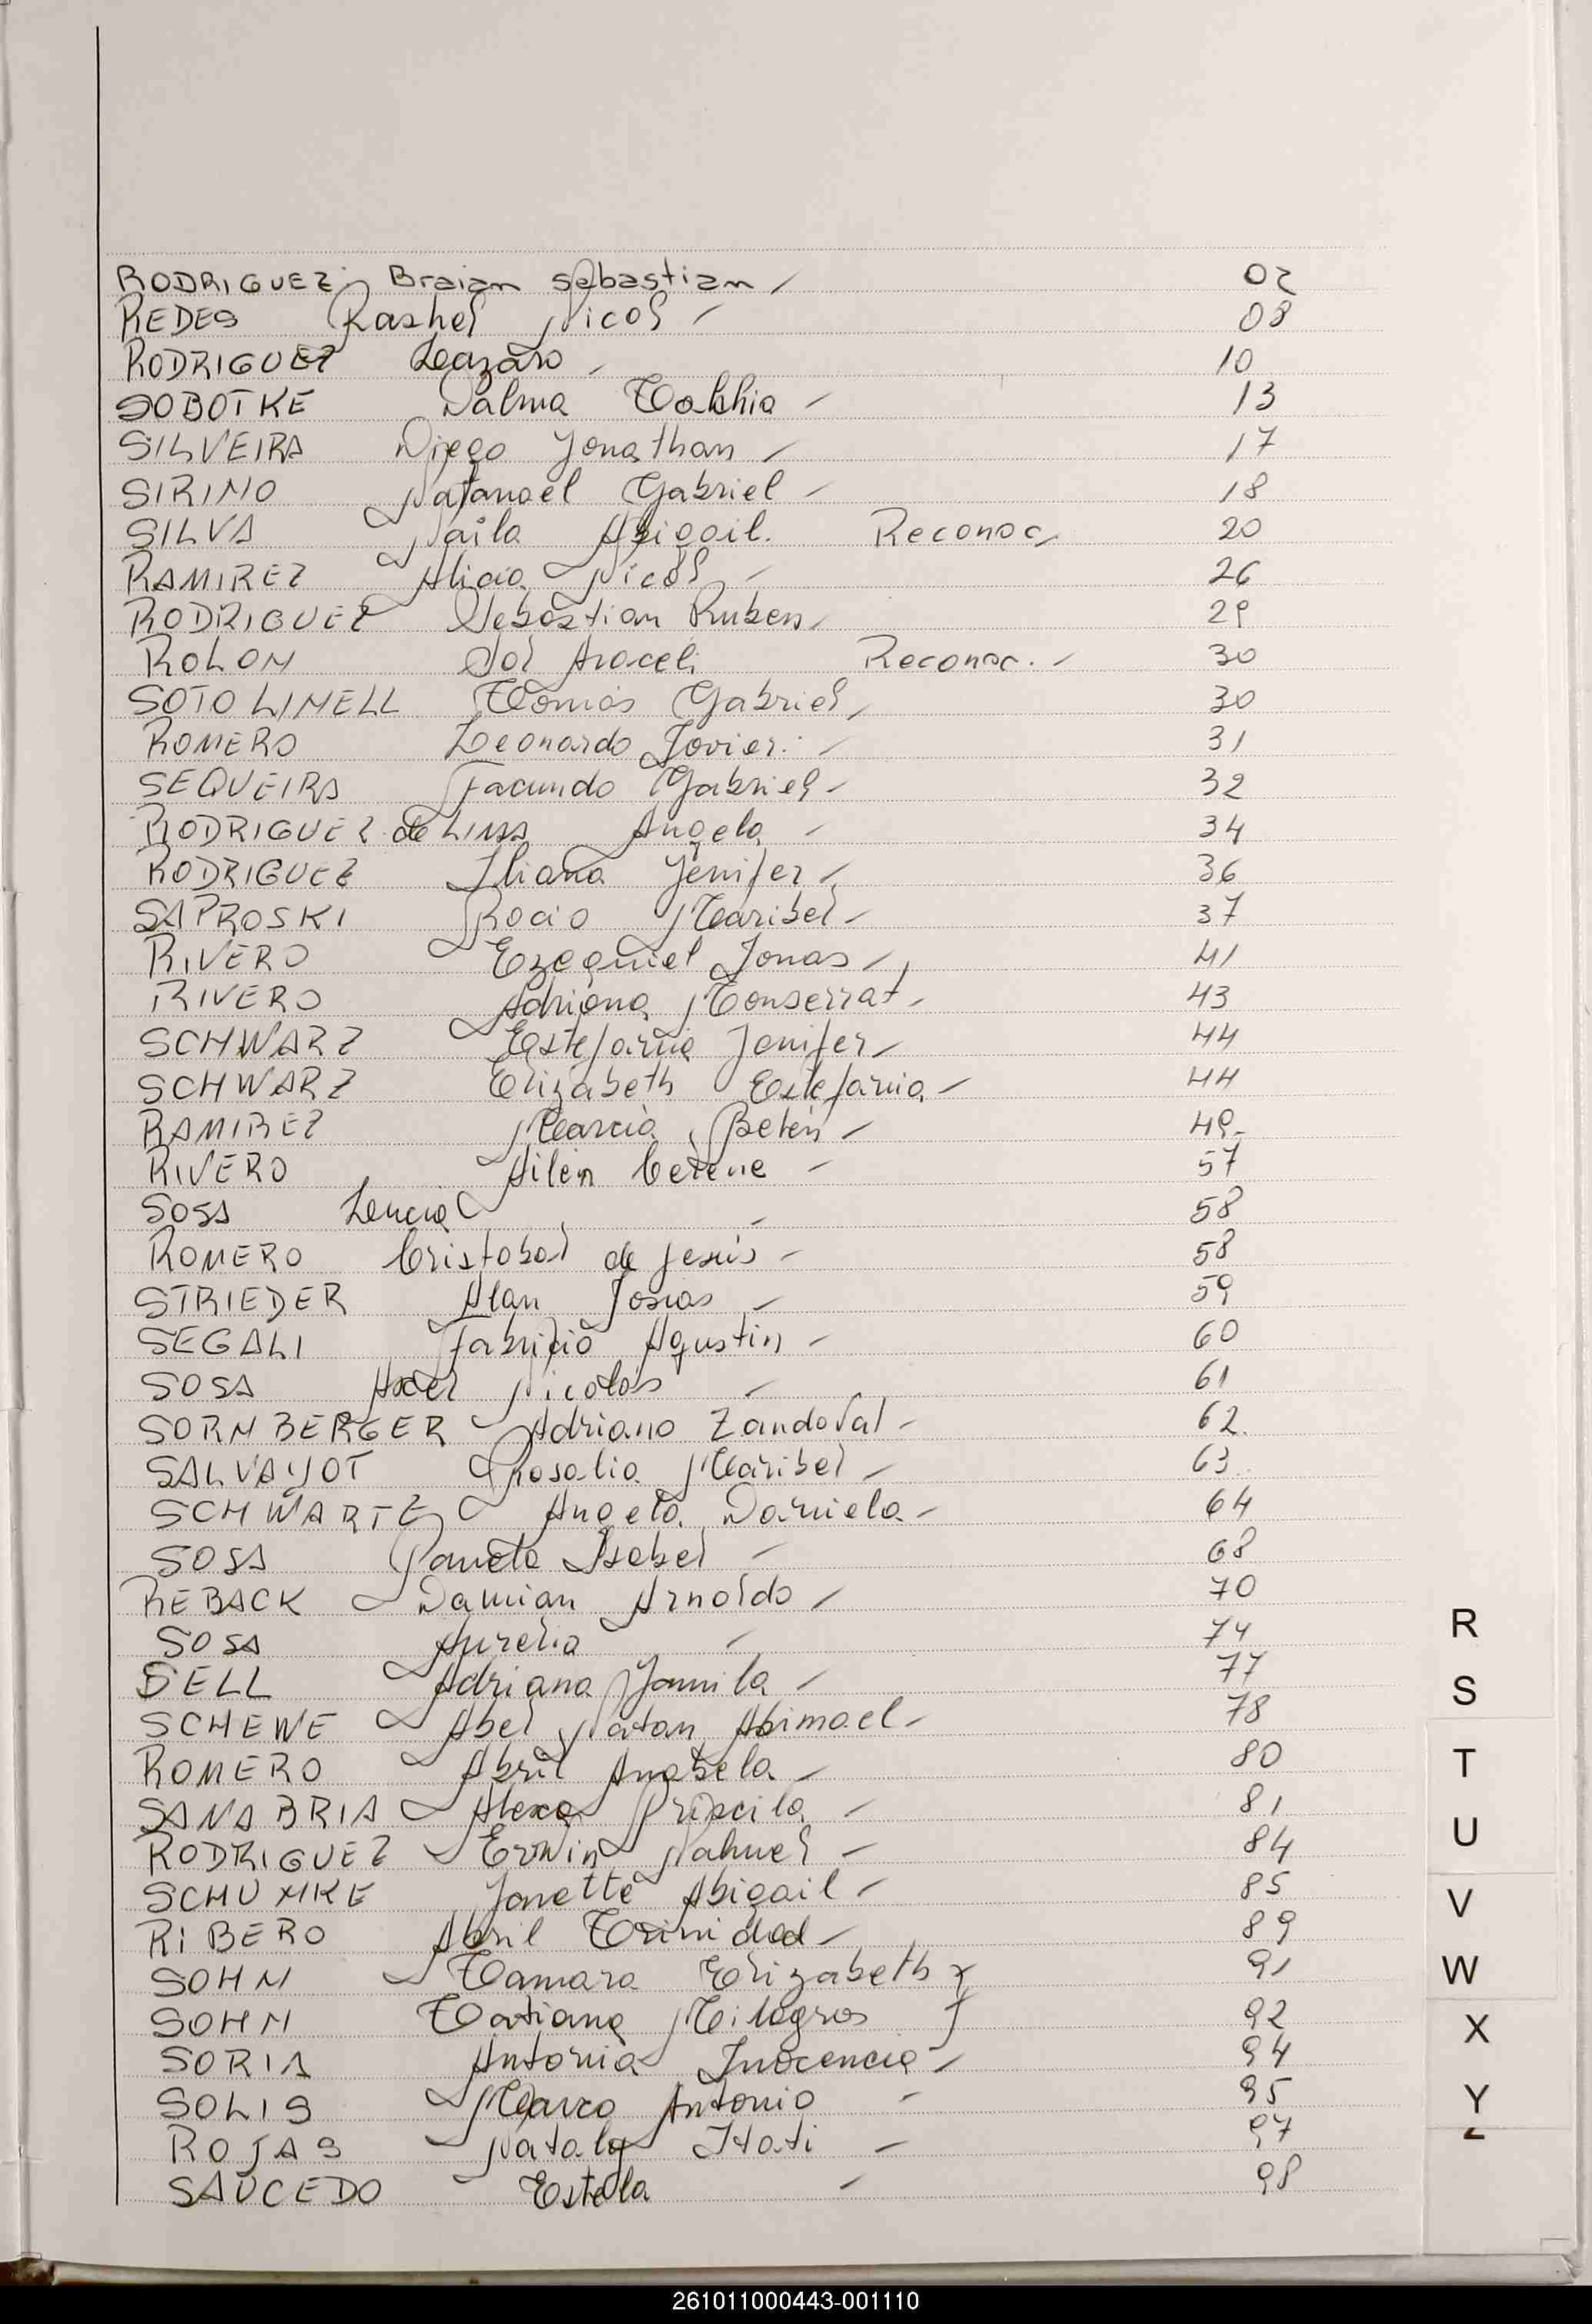 RODRIGUEZ Braian Sebastian 02
REDES Rashel Nicol 08
RODRIGUEZ Leazaro 10
SOBOTKE Dalma 13
SILVEIRA Diego Jonathan 17
SIRINO Natanael Gabriel 18
SILVA Naila Abigail. Reconoc 20
RAMIREZ Alicia Nicol 26
RODRIGUEZ Sebastian Ruben 29
ROLON Sol Araceli Reconoc. 30
SOTO LINELL Tomás Gabriel 30
ROMERO Leonardo Javier. 31
SEQUEIRA Facundo Gabriel 32
RODRIGUEZ de LIMA Angela 34
RODRIGUEZ Iliana Jenifer 36
SAPROSKI Rocio Maribel 37
RIVERO Ezequiel Jonas 41
RIVERO Adriana Monserrat 43
SCHWARZ Estefania Jenifer 44
SCHWARZ Elizabeth Estefania 44
RAMIREZ Marcia Belén 49
RIVERO Ailén Celene 57
SOSA Lencia 58
ROMERO Cristobal de Jesús 58
STRIEDER Alan Josias 59
SEGALI Fabricio Agustin 60
SOSA Axel Nicolás 61
SORNBERGER Adriano Zandoval 62
SALVAYOT Rosalia Maribel 63
SCHWARTZ Angela Daniela 64
SOSA Pamela Isabel 68
REBACK Damian Arnoldo 70
SOSA Aurelia 74
SELL Adriana Yamila 77
SCHEWE Abel Natan Abimael 78
ROMERO Abril Anabela 80
SANABRIA Alexa Priscila 81
RODRIGUEZ Erwin Nahuel 84
SCHUMKE Janette Abigail 85
RIBERO Abril Trinidad 89
SOHN Tamara Elizabeth 91
SOHN Tatiana Milagros 92
SORIA Antonia Inocencia 94
SOLIS Marco Antonio 95
ROJAS Nataly Itati 97
SAUCEDO Estela 98
R
S
T
U
V
W
X
Y
Z
261011000443-001110